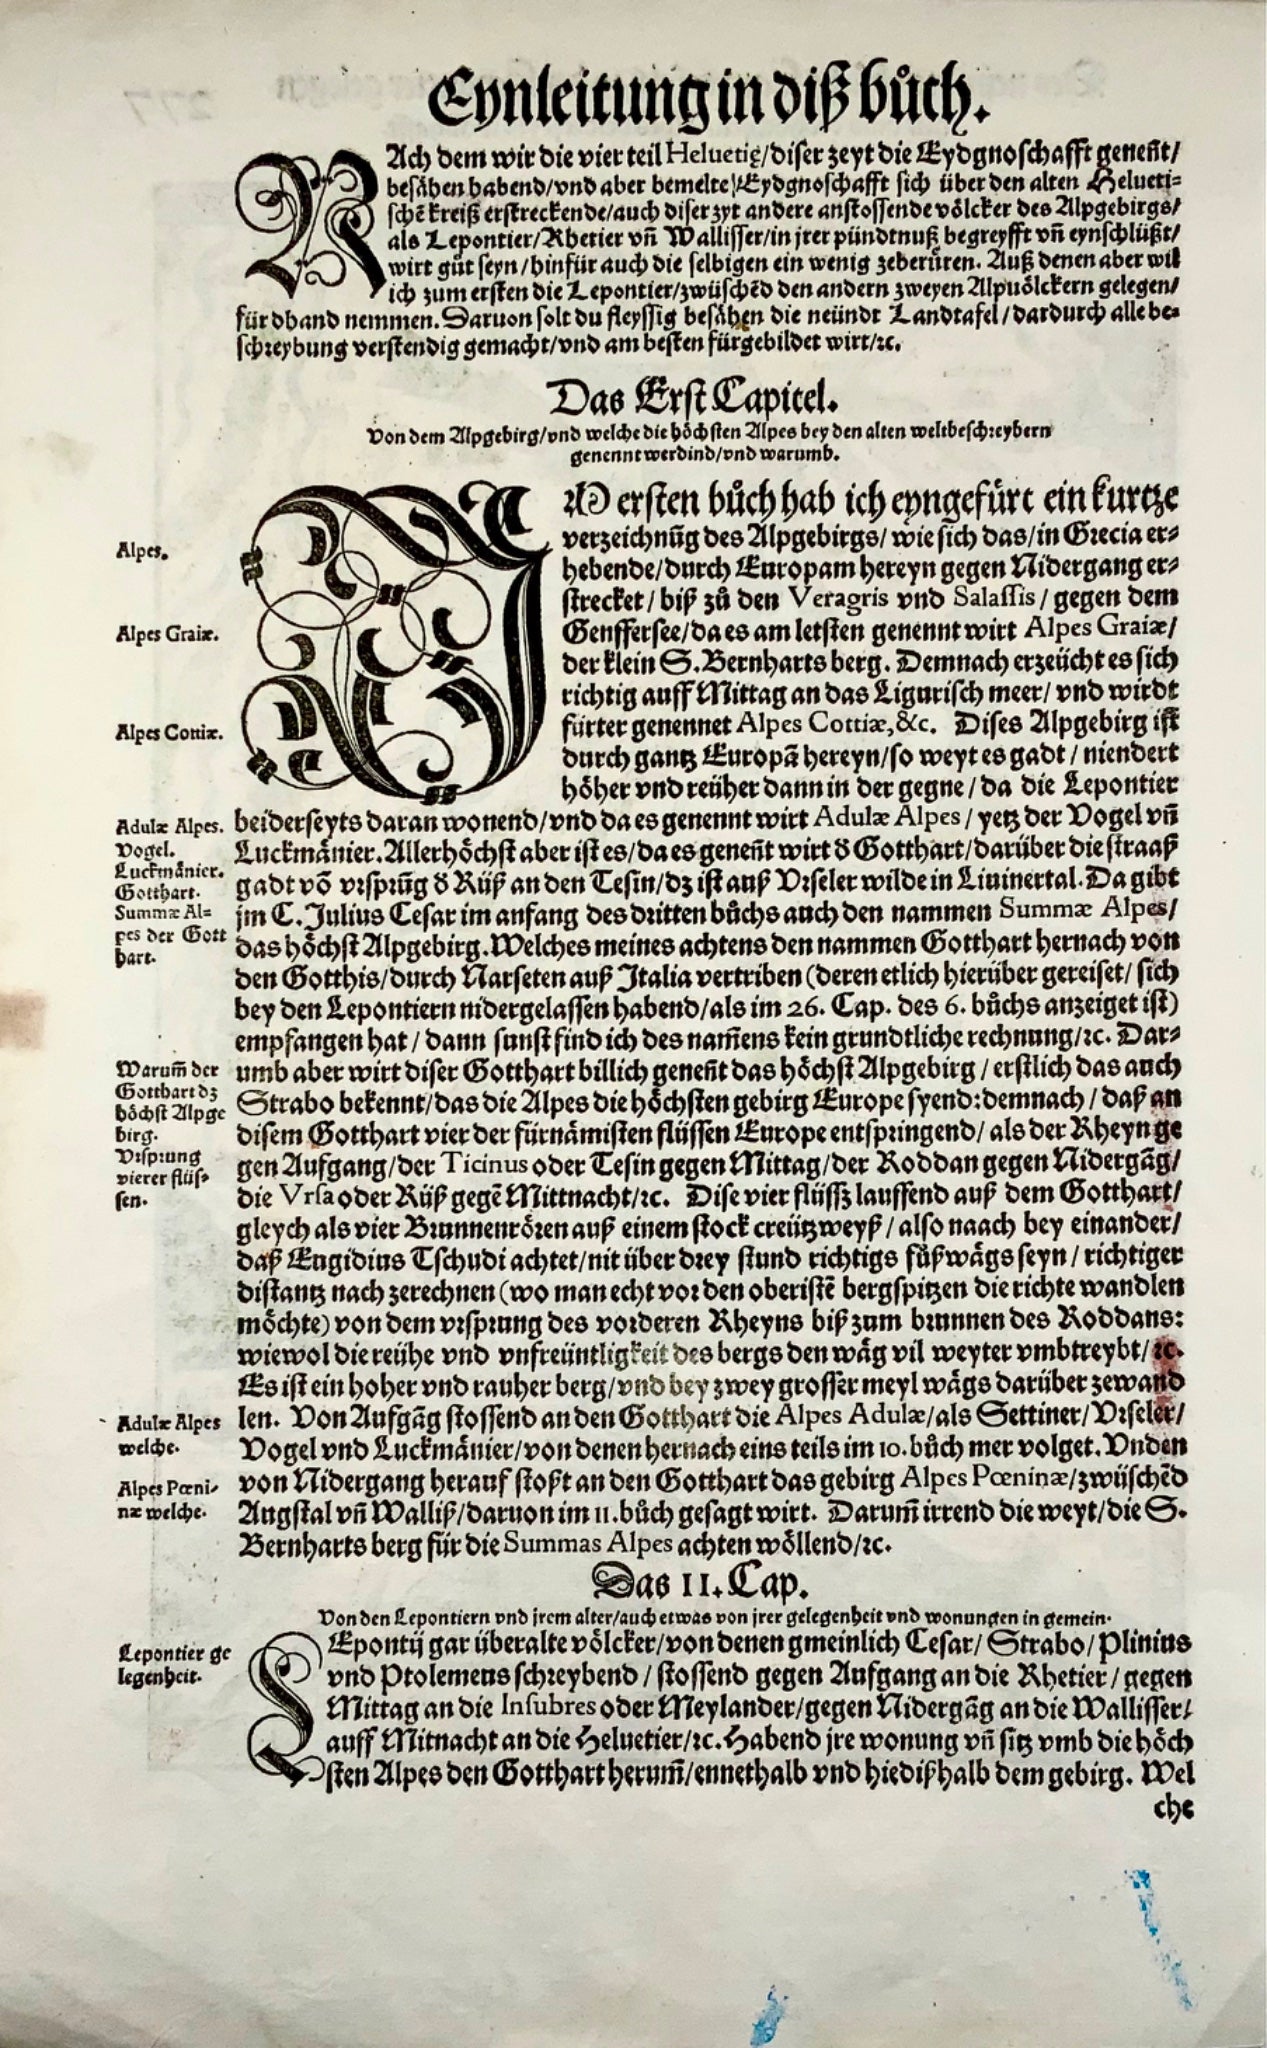 Eynleitung in diß bůch.
NAch dem wir die vier teil Heluetię/diser zeyt die Eydgnoschafft geneñt/
besåhen habend/vnd aber bemelte Eydgnoschafft sich über den alten Helueti=
schẽ kreiß erstreckende/auch diser zyt andere anstossende völcker des Alpgebirgs/
als Lepontier/Rhetier vñ Wallisser/in jrer pündtnuß begreyfft vñ eynschlüßt/
wirt gůt seyn/hinfür auch die selbigen ein wenig zeberüren. Auß denen aber wil
ich zum ersten die Lepontier/zwüschẽd den andern zweyen Alpuölckern gelegen/
für dhand nemmen. Daruon solt du fleyssig besåhen die neündt Landtafel/dardurch alle be=
schreybung verstendig gemacht/vnd am besten fürgebildet wirt/ꝛc.
Das Erst Capitel.
Von dem Alpgebirg/vnd welche die höchsten Alpes bey den alten weltbeschreybern
genennt werdind/vnd warumb.
IM ersten bůch hab ich eyngefürt ein kurtze
verzeichnũg des Alpgebirgs/wie sich das/in Grecia er=
Alpes.
hebende/durch Europam hereyn gegen Nidergang er=
strecket/biß zů den Veragris vnd Salassis/gegen dem
Alpes Graiæ.
Genffersee/da es am letsten genennt wirt Alpes Graiæ/
der klein S. Bernharts berg. Demnach erzeücht es sich
richtig auff Mittag an das Ligurisch meer/vnd wirdt
Alpes Cottiæ.
fürter genennet Alpes Cottiæ,&c. Dises Alpgebirg ist
durch gantz Europã hereyn/so weyt es gadt/niendert
höher vnd reüher dann in der gegne/da die Lepontier
Adulæ Alpes.
beiderseyts daran wonend/vnd da es genennt wirt Adulæ Alpes/yetz der Vogel vñ
Vogel.
Luckmånier.
Luckmånier. Allerhöchst aber ist es/da es geneñt wirt d Gotthart/darüber die straaß
Gotthart.
gadt võ vrsprũg d Rüß an den Tesin/dz ist auß Vrseler wilde in Liuinertal. Da gibt
Summæ Al=
jm C. Julius Cesar im anfang des dritten bůchs auch den nammen Summæ Alpes/
pes der Gott
das höchst Alpgebirg. Welches meines achtens den nammen Gotthart hernach von
hart.
den Gotthis/durch Narseten auß Italia vertriben (deren etlich hierüber gereiset/sich
bey den Lepontiern nidergelassen habend/als im 26. Cap. des 6. bůchs anzeiget ist)
empfangen hat/dann sunst find ich des nam̃ens kein grundtliche rechnung/ꝛc. Dar=
Warum̃ der
umb aber wirt diser Gotthart billich geneñt das höchst Alpgebirg/erstlich das auch
Gotthart dz
höchst Alpge
Strabo bekennt/das die Alpes die höchsten gebirg Europe syend: demnach/daß an
birg.
disem Gotthart vier der fürnåmisten flüssen Europe entspringend/als der Rheyn ge
Vrsprung
vierer flüs=
gen Aufgang/der Ticinus oder Tesin gegen Mittag/der Roddan gegen Nidergãg/
sen.
die Vrsa oder Rüß gegẽ Mittnacht/ꝛc. Dise vier flüssz lauffend auß dem Gotthart/
gleych als vier Brunnenrören auß einem stock creützweyß/also naach bey einander/
daß Eugidius Tschudi achtet/nit über drey stund richtigs fůßwågs seyn/richtiger
distantz nach zerechnen (wo man echt vor den oberistẽ bergspitzen die richte wandlen
möchte) von dem vrsprung des vorderen Rheyns biß zum brunnen des Roddans:
wiewol die reühe vnd vnfreüntligkeit des bergs den wåg vil weyter vmbtreybt/ꝛc.
Es ist ein hoher vnd rauher berg/vnd bey zwey grosser meyl wågs darüber zewand
Adulæ Alpes
len. Von Aufgãg stossend an den Gotthart die Alpes Adulæ/als Settiner/Vrseler/
welche.
Vogel vnd Luckmånier/von denen hernach eins teils im 10. bůch mer volget. Vnden
Alpes Pœni=
von Nidergang herauf stoßt an den Gotthart das gebirg Alpes Pœninæ/zwüschẽd
næ welche.
Augstal vñ Walliß/daruon im 11. bůch gesagt wirt. Darum̃ irrend die weyt/die S.
Bernharts berg für die Summas Alpes achten wöllend/ꝛc.
Das II. Cap.
Von den Lepontiern vnd jrem alter/auch etwas von jrer gelegenheit vnd wonungen in gemein.
Lepontier ge
LEpontij gar überalte völcker/von denen gmeinlich Cesar/Strabo/Plinius
legenheit.
vnd Ptolemeus schreybend/stossend gegen Aufgang an die Rhetier/gegen
Mittag an die Insubres oder Meylander/gegen Nidergãg an die Wallisser/
auff Mitnacht an die Heluetier/ꝛc. Habend jre wonung vñ sitz vmb die höch
sten Alpes den Gotthart herum̃/ennethalb vnd hiedißhalb dem gebirg. Wel
che